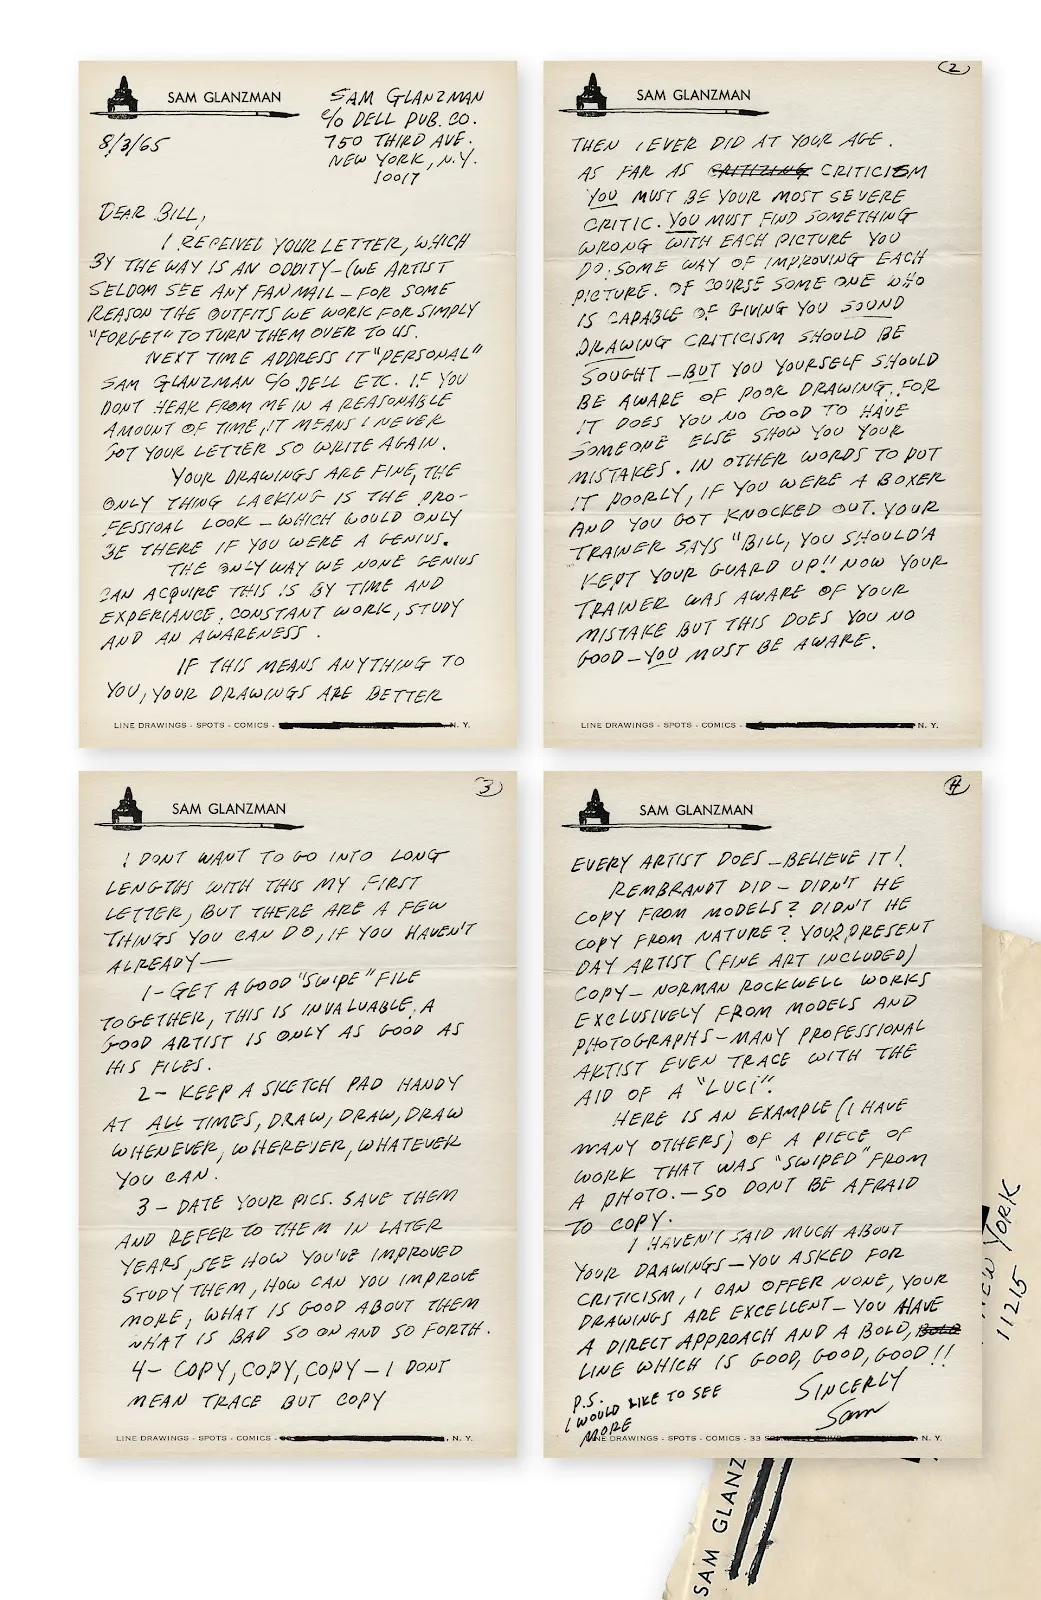 SAM GLANZMAN
SAM GLANZMAN
C/O DELL PUB. CO.
750 THIRD AVE.
NEW YORK, N.Y.
10017
8/3/65
DEAR BILL,
I RECEIVED YOUR LETTER, WHICH
BY THE WAY IS AN ODDITY—(WE ARTIST
SELDOM SEE ANY FAN MAIL — FOR SOME
REASON THE OUTFITS WE WORK FOR SIMPLY
"FORGET" TO TURN THEM OVER TO US.
NEXT TIME ADDRESS IT "PERSONAL"
SAM GLANZMAN C/O DELL ETC. IF YOU
DONT HEAR FROM ME IN A REASONABLE
AMOUNT OF TIME, IT MEANS I NEVER
GOT YOUR LETTER SO WRITE AGAIN.
YOUR DRAWINGS ARE FINE, THE
ONLY THING LACKING IS THE PRO-
FESSIONAL LOOK — WHICH WOULD ONLY
BE THERE IF YOU WERE A GENIUS.
THE ONLY WAY WE NONE GENIUS
CAN ACQUIRE THIS IS BY TIME AND
EXPERIANCE. CONSTANT WORK, STUDY
AND AN AWARENESS.
IF THIS MEANS ANYTHING TO
YOU, YOUR DRAWINGS ARE BETTER
LINE DRAWINGS - SPOTS - COMICS - N. Y.
2
SAM GLANZMAN
THEN I EVER DID AT YOUR AGE.
AS FAR AS CRITIZING CRITICISM
YOU MUST BE YOUR MOST SEVERE
CRITIC. YOU MUST FIND SOMETHING
WRONG WITH EACH PICTURE YOU
DO; SOME WAY OF IMPROVING EACH
PICTURE. OF COURSE SOME ONE WHO
IS CAPABLE OF GIVING YOU SOUND
DRAWING CRITICISM SHOULD BE
SOUGHT — BUT YOU YOURSELF SHOULD
BE AWARE OF POOR DRAWING. FOR
IT DOES YOU NO GOOD TO HAVE
SOMEONE ELSE SHOW YOU YOUR
MISTAKES. IN OTHER WORDS TO PUT
IT POORLY, IF YOU WERE A BOXER
AND YOU GOT KNOCKED OUT. YOUR
TRAINER SAYS "BILL, YOU SHOULD'A
KEPT YOUR GUARD UP!! NOW YOUR
TRAINER WAS AWARE OF YOUR
MISTAKE BUT THIS DOES YOU NO
GOOD — YOU MUST BE AWARE.
LINE DRAWINGS - SPOTS - COMICS - N. Y.
3
SAM GLANZMAN
I DONT WANT TO GO INTO LONG
LENGTHS WITH THIS MY FIRST
LETTER, BUT THERE ARE A FEW
THINGS YOU CAN DO, IF YOU HAVEN'T
ALREADY —
1- GET A GOOD "SWIPE" FILE
TOGETHER, THIS IS INVALUABLE. A
GOOD ARTIST IS ONLY AS GOOD AS
HIS FILES.
2- KEEP A SKETCH PAD HANDY
AT ALL TIMES, DRAW, DRAW, DRAW
WHENEVER, WHEREVER, WHATEVER
YOU CAN.
3 - DATE YOUR PICS. SAVE THEM
AND REFER TO THEM IN LATER
YEARS, SEE HOW YOU'VE IMPROVED
STUDY THEM, HOW CAN YOU IMPROVE
MORE, WHAT IS GOOD ABOUT THEM
WHAT IS BAD SO ON AND SO FORTH.
4- COPY, COPY, COPY — I DONT
MEAN TRACE BUT COPY
LINE DRAWINGS - SPOTS - COMICS - , N. Y.
4
SAM GLANZMAN
EVERY ARTIST DOES — BELIEVE IT!
REMBRANDT DID — DIDN'T HE
COPY FROM MODELS? DIDN'T HE
COPY FROM NATURE? YOUR PRESENT
DAY ARTIST (FINE ART INCLUDED)
COPY — NORMAN ROCKWELL WORKS
EXCLUSIVELY FROM MODELS AND
PHOTOGRAPHS — MANY PROFESSIONAL
ARTIST EVEN TRACE WITH THE
AID OF A "LUCI".
HERE IS AN EXAMPLE (I HAVE
MANY OTHERS) OF A PIECE OF
WORK THAT WAS "SWIPED" FROM
A PHOTO. — SO DONT BE AFRAID
TO COPY.
I HAVEN'T SAID MUCH ABOUT
YOUR DRAWINGS — YOU ASKED FOR
CRITICISM, I CAN OFFER NONE, YOUR
DRAWINGS ARE EXCELLENT — YOU HAVE
A DIRECT APPROACH AND A BOLD, BOLD
LINE WHICH IS GOOD, GOOD, GOOD!!
SINCERLY
Sam
P.S.
I WOULD LIKE TO SEE
MORE
LINE DRAWINGS - SPOTS - COMICS - 33 N. Y.
NEW YORK
11215
SAM GLANZ